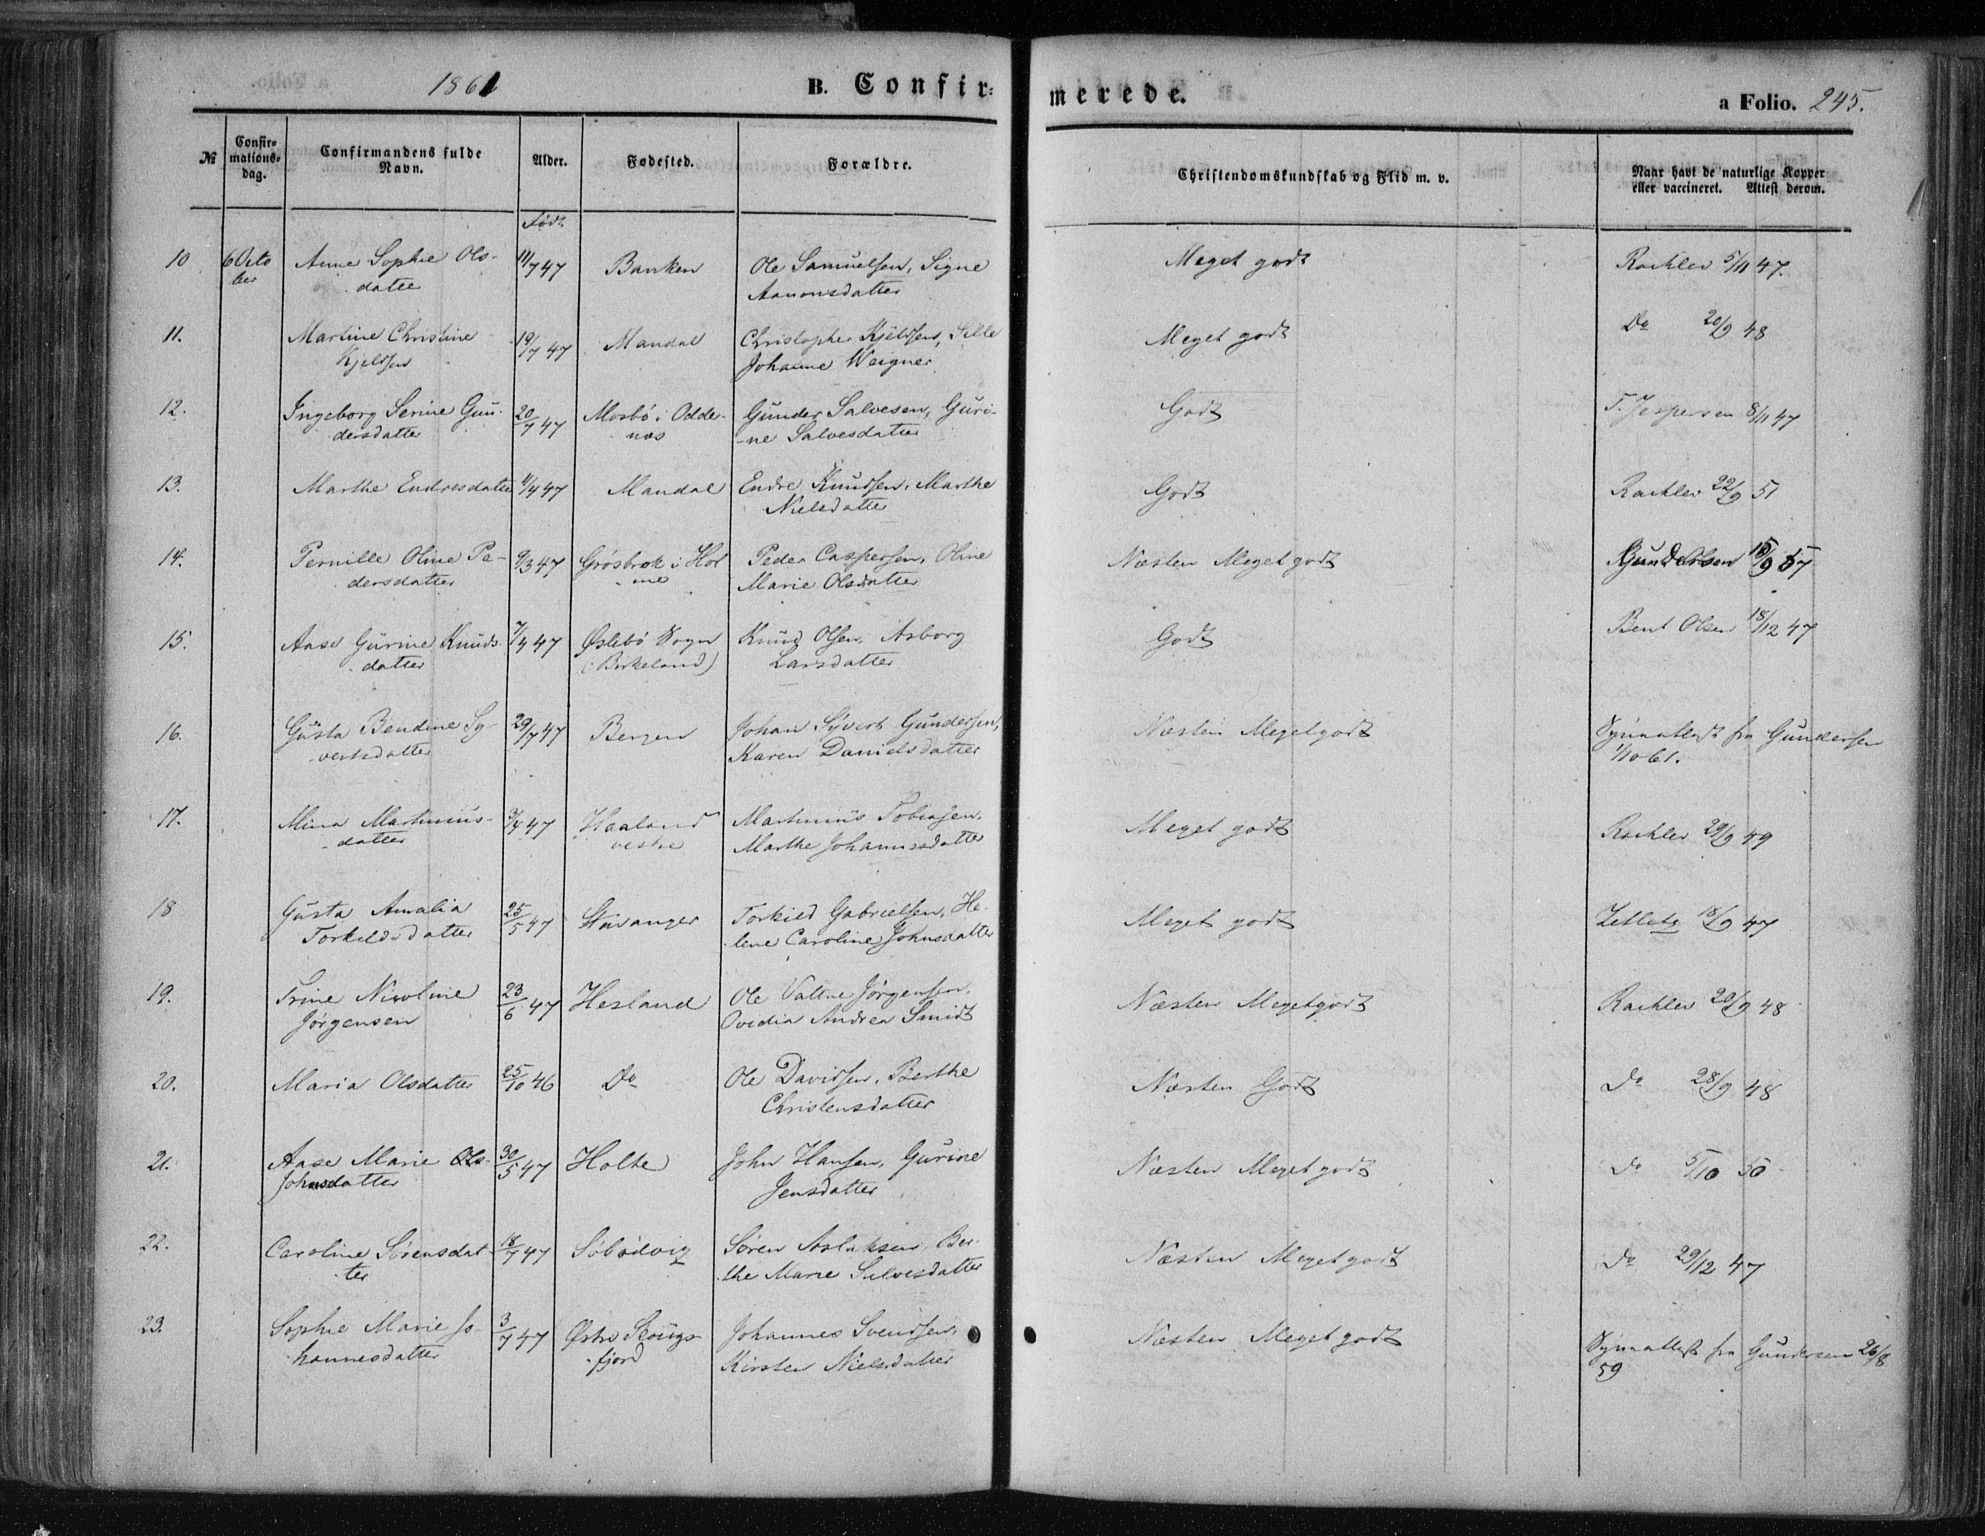 1861
B. Confirmerede.
a Folio. 245.
№
Confirmationsdag.
Confirmandens fulde Navn.
Alder.
Fødested.
Forældre.
Christendomskundskab og Flid m. v.
Naar havt de naturlige Kopper eller vaccineret. Attest derom.
Født
10 6 Octo Anne Sophie Ols- 11/7 47 Banken Ole Samuelsen, Signe Meget godt Rachlev 5/11 47.
ber datter Aanonsdatter
11. Martine Christine 19/7 47 Mandal Christopher Kjeldsen, Sille Meget godt Do 20/9 48
Kjeldsen Johanne Weigner
12. Ingeborg Serine Gun- 20/7 47 Mosbö i Odde- Gunder Salvesen, Guri- Godt T. Jespersen 8/11 47
dersdatter næs -ne Salvesdatter
13. Marthe Endresdatter 11/4 47 Mandal Endre Knudsen, Marthe Godt Rachlev 22/9 51
Nielsdatter
14. Pernille Oline Pe- 9/3 47 Grösbrok i Hol Peder Caspersen, Oline Næsten Meget godt Gundersen 18/9 57
dersdatter -me Marie Olsdatter
15. Aase Gurine Knuds- 7/4 47 Øslebö Sogn Knud Olsen, Asborg Godt Bent Olsen 18/12 47
datter (Birkeland) Larsdatter
16. Gusta Bendine Sy- 29/7 47 Bergen Johan Syvert Gundersen, Næsten Meget godt Synsattest fra Gundersen
vertsdatter Karen Danielsdatter 1/10 61.
17. Mina Martinius- 3/4 47 Haaland Martinius Tobiasen, Meget godt Rachlev 29/9 49
datter vestre Marthe Johannesdatter
18 Gusta Amalia 25/5 47 Stavanger Torkild Gabrielsen, He- Meget godt Zetlitz 18/9 47
Torkildsdatter lene Caroline Johnsdatter
19. Trine Nicoline 23/6 47 Hesland Ole Vatne Jörgensen, Næsten Meget godt Rachlev 20/9 48
Jörgensen Ovidia Andrea Smidt
20. Maria Olsdatter 25/10 46 Do Ole Davidsen, Berthe Næsten Godt Do 28/9 48
Christensdatter
21. Aase Marie Ols- 30/5 47 Holte John Hansen, Gurine Næsten Meget godt Do 5/10 50
Johnsdatter Jensdatter
22. Caroline Sörensdat- 18/7 47 Söbödvig Sören Aslaksen, Ber- Næsten Meget godt Do 29/12 47
ter the Marie Salvesdatter
23. Sophie Marie Jo- 3/7 47 Østre Skougs- Johannes Svendsen, Næsten Meget godt Synsattest fra Gundersen 26/8
hannesdatter fjord Kirsten Nielsdatter 59